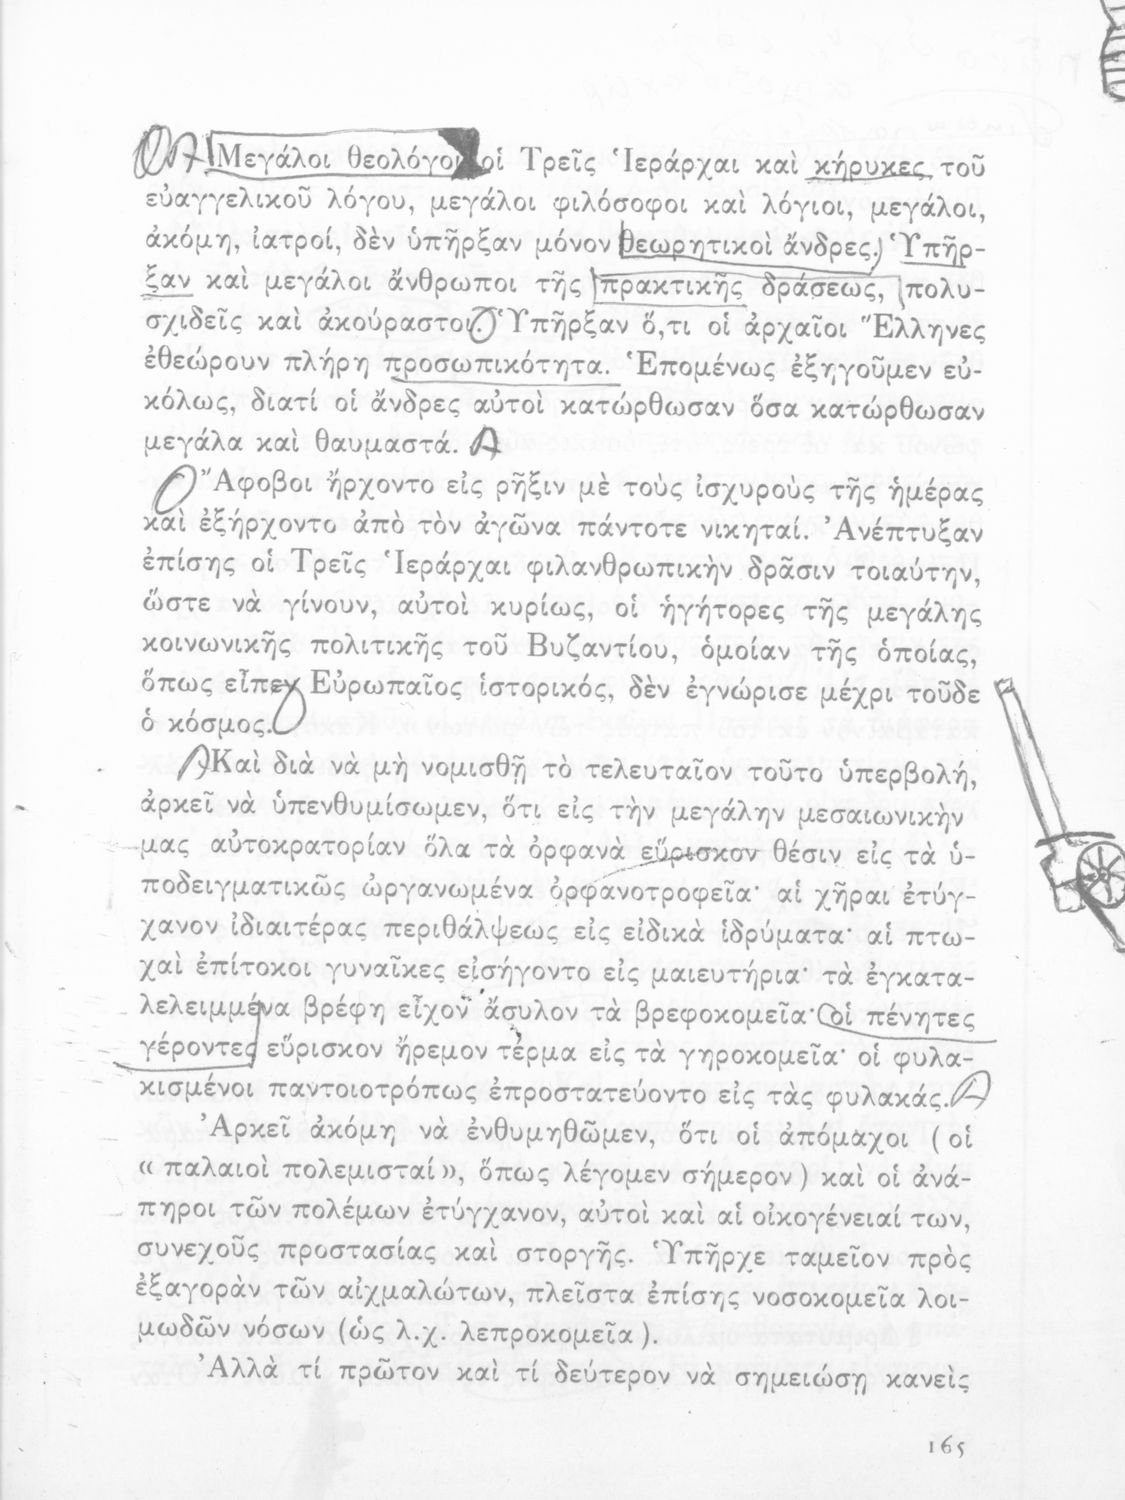 Μεγάλοι θεολόγοι οἱ Τρεῖς Ἱεράρχαι καὶ κήρυκες τοῦ
εὐαγγελικοῦ λόγου, μεγάλοι φιλόσοφοι καὶ λόγιοι, μεγάλοι,
ἀκόμη, ἰατροί, δὲν ὑπῆρξαν μόνον θεωρητικοὶ ἄνδρες. Ὑπῆρ-
ξαν καὶ μεγάλοι ἄνθρωποι τῆς πρακτικῆς δράσεως, πολυ-
σχιδεῖς καὶ ἀκούραστοι. Ὑπῆρξαν ὅ,τι οἱ ἀρχαῖοι Ἕλληνες
ἐθεώρουν πλήρη προσωπικότητα. Ἑπομένως ἐξηγοῦμεν εὐ-
κόλως, διατί οἱ ἄνδρες αὐτοὶ κατώρθωσαν ὅσα κατώρθωσαν
μεγάλα καὶ θαυμαστά.
Ἄφοβοι ἤρχοντο εἰς ρῆξιν μὲ τοὺς ἰσχυροὺς τῆς ἡμέρας
καὶ ἐξήρχοντο ἀπὸ τὸν ἀγῶνα πάντοτε νικηταί. Ἀνέπτυξαν
ἐπίσης οἱ Τρεῖς Ἱεράρχαι φιλανθρωπικὴν δρᾶσιν τοιαύτην,
ὥστε νὰ γίνουν, αὐτοὶ κυρίως, οἱ ἡγήτορες τῆς μεγάλης
κοινωνικῆς πολιτικῆς τοῦ Βυζαντίου, ὁμοίαν τῆς ὁποίας,
ὅπως εἶπεν Εὐρωπαῖος ἱστορικός, δὲν ἐγνώρισε μέχρι τοῦδε
ὁ κόσμος.
Καὶ διὰ νὰ μὴ νομισθῇ τὸ τελευταῖον τοῦτο ὑπερβολή,
ἀρκεῖ νὰ ὑπενθυμίσωμεν, ὅτι εἰς τὴν μεγάλην μεσαιωνικὴν
μας αὐτοκρατορίαν ὅλα τὰ ὀρφανὰ εὕρισκον θέσιν εἰς τὰ ὑ-
ποδειγματικῶς ὠργανωμένα ὀρφανοτροφεῖα· αἱ χῆραι ἐτύγ-
χανον ἰδιαιτέρας περιθάλψεως εἰς εἰδικὰ ἱδρύματα· αἱ πτω-
χαὶ ἐπίτοκοι γυναῖκες εἰσήγοντο εἰς μαιευτήρια· τὰ ἐγκατα-
λελειμμένα βρέφη εἶχον ἄσυλον τὰ βρεφοκομεῖα· οἱ πένητες
γέροντες εὕρισκον ἤρεμον τέρμα εἰς τὰ γηροκομεῖα· οἱ φυλα-
κισμένοι παντοιοτρόπως ἐπροστατεύοντο εἰς τὰς φυλακάς.
Ἀρκεῖ ἀκόμη νὰ ἐνθυμηθῶμεν, ὅτι οἱ ἀπόμαχοι (οἱ
« παλαιοὶ πολεμισταί», ὅπως λέγομεν σήμερον) καὶ οἱ ἀνά-
πηροι τῶν πολέμων ἐτύγχανον, αὐτοὶ καὶ αἱ οἰκογένειαί των,
συνεχοῦς προστασίας καὶ στοργῆς. Ὑπῆρχε ταμεῖον πρὸς
ἐξαγορὰν τῶν αἰχμαλώτων, πλεῖστα ἐπίσης νοσοκομεῖα λοι-
μωδῶν νόσων (ὡς λ.χ. λεπροκομεῖα).
Ἀλλὰ τί πρῶτον καὶ τί δεύτερον νὰ σημειώσῃ κανεὶς
165